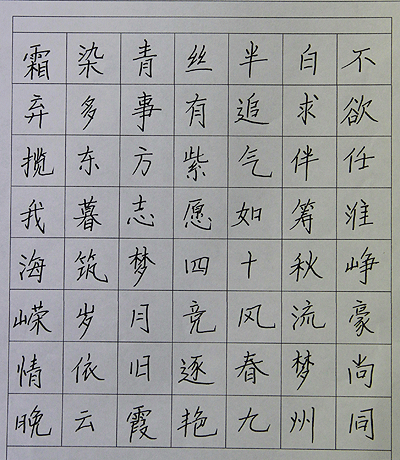 霜染青丝半白不
弃多事有追求欲
揽东方紫气伴任
我暮志愿如筹淮
海筑梦四十秋峥
嵘岁月竞风流豪
情依旧逐春梦尚
晚云霞艳九州同